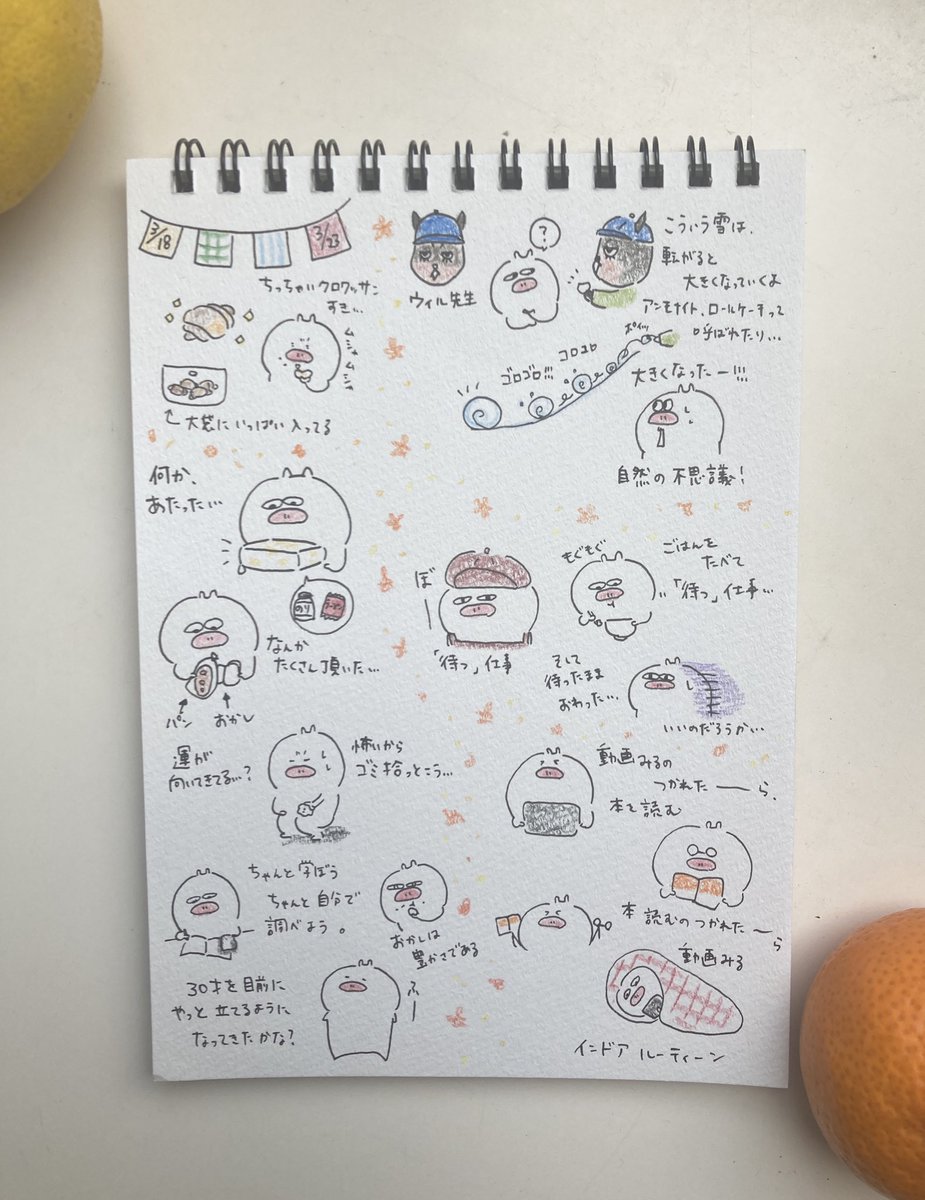 3/18
3/23
ちっちゃいクロワッサン
すき...
ムシャ
ムシャ
大袋にいっぱい入ってる
何か、
あたった...
のり
ラーメン
なんか
たくさん頂いた...
パン
おかし
運が
向いてきてる...?
怖いから
ゴミ拾っとこう...
ちゃんと学ぼう
ちゃんと自分で
調べよう。
おかしは
豊かさである
30才を目前に
やっと立てるように
なってきたかな?
ふー
ウィル先生
?
こういう雪は、
転がると
大きくなっていくよ
アンモナイト、ロールケーキって
呼ばれたり...
ポイッ
コロコロ
ゴロゴロ!!!
大きくなったー!!!
自然の不思議!
ぼー
「待つ」仕事
もぐもぐ
ごはんを
たべて
「待つ」仕事...
そして
待ったまま
おわった...
いいのだろうか...
動画みるの
つかれたーら、
本を読む
本読むのつかれたーら
動画みる
インドアルーティーン